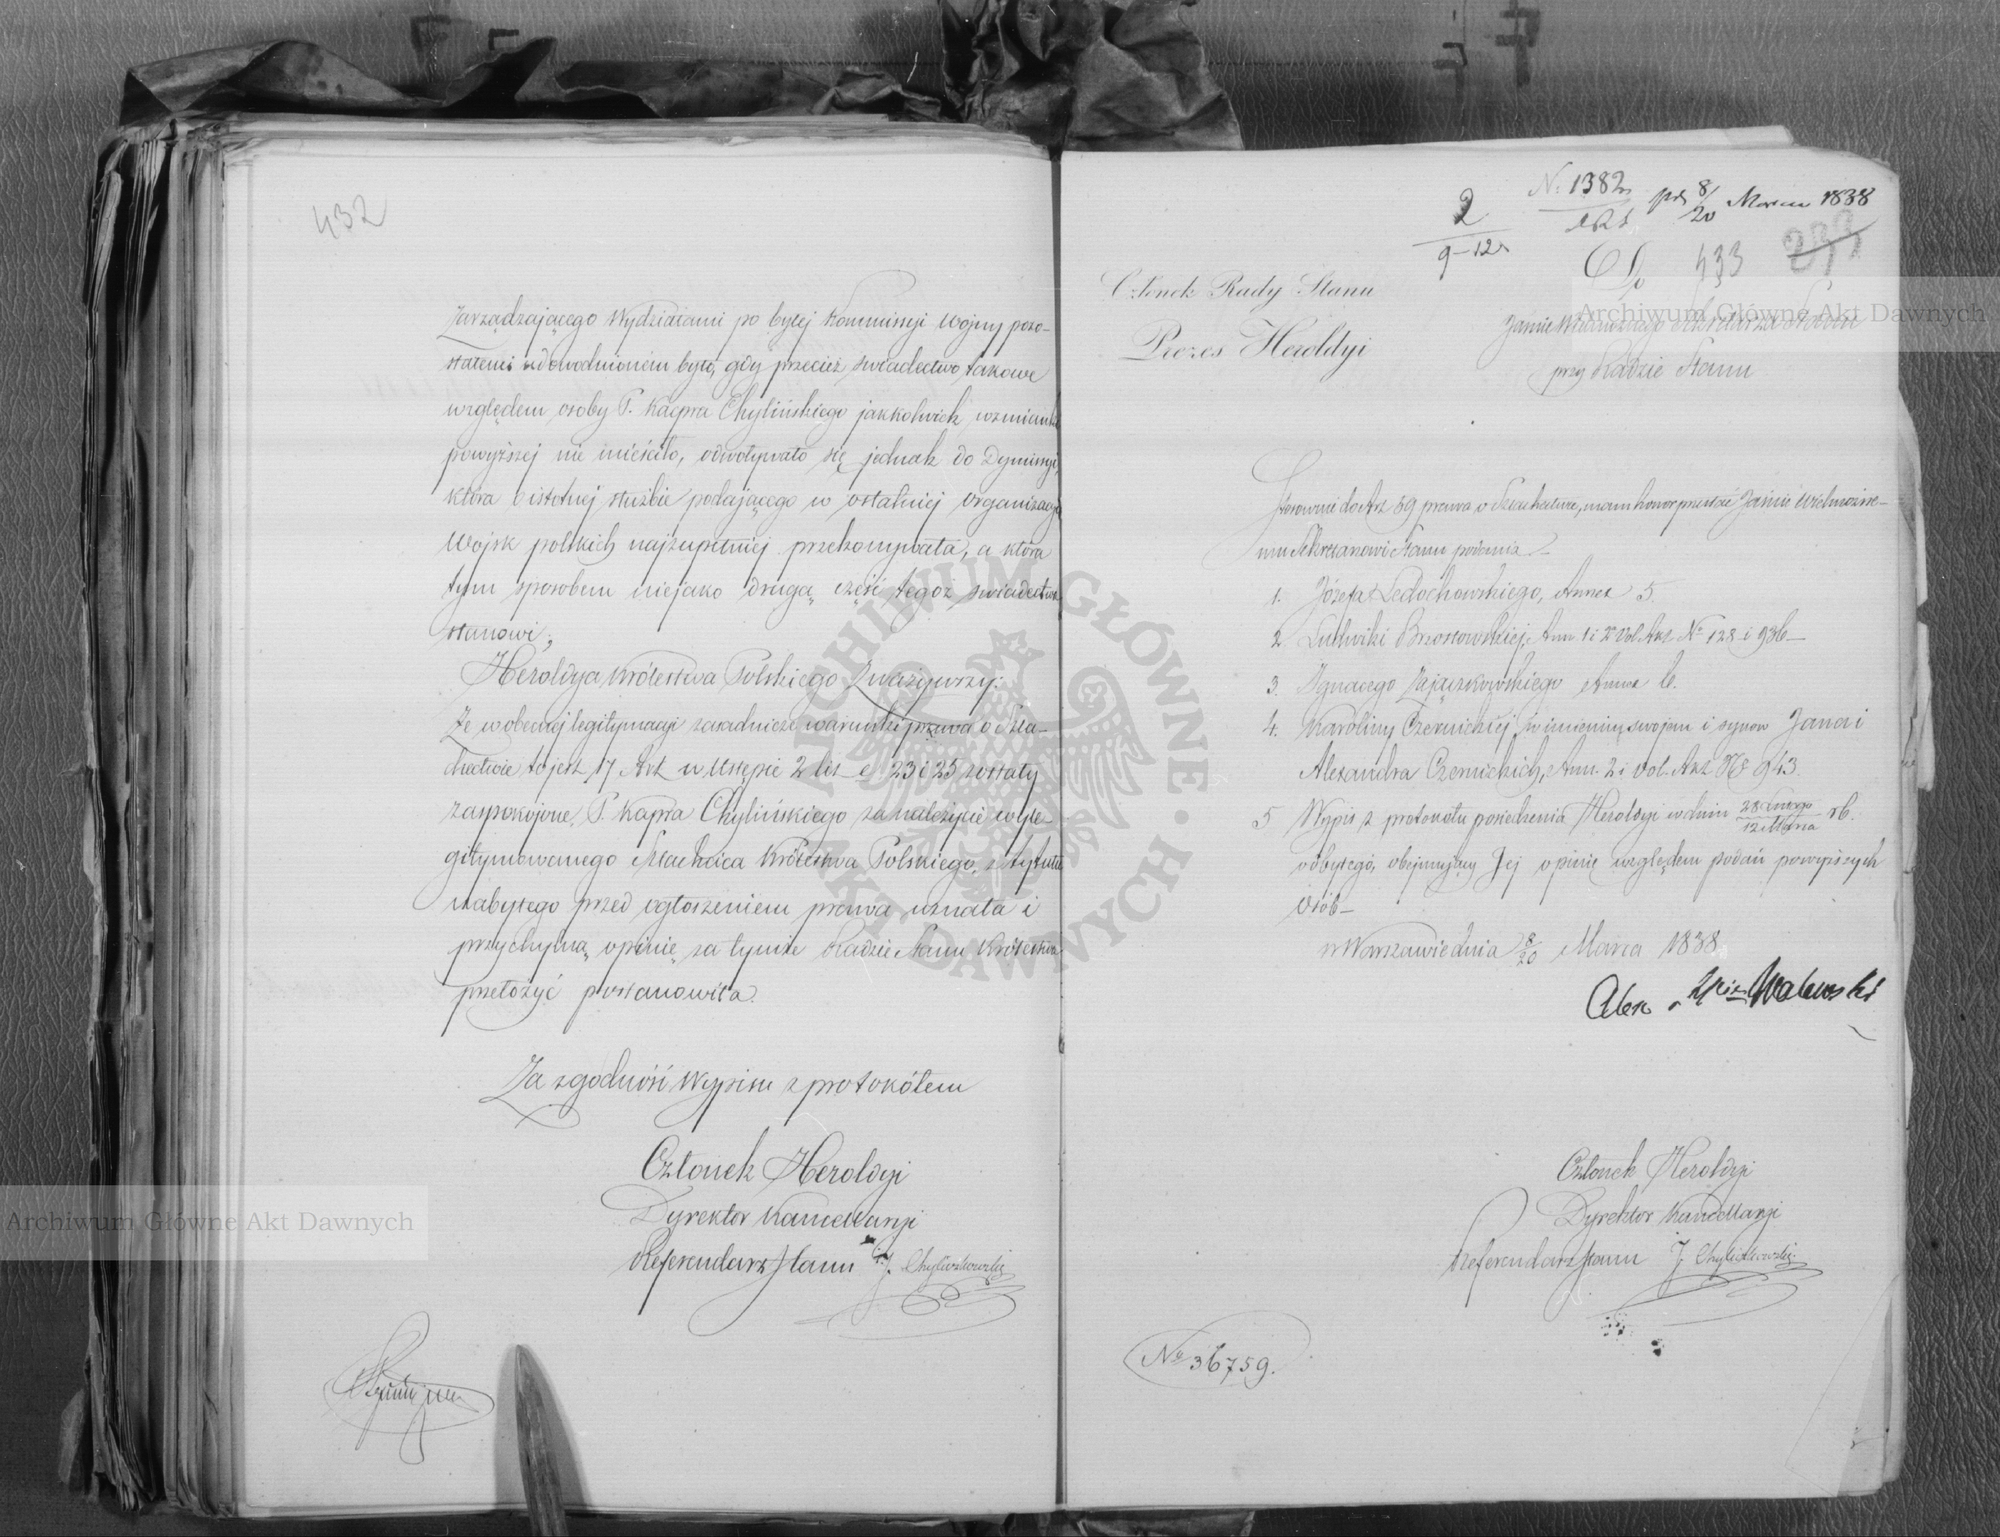 432
Zarządzającego Wydziałami po byłej Kommissyi Wojny pozo-
stałemi udowodnionem było, gdy przecież świadectwo takowe
względem osoby P. Kacpra Chylińskiego jakkolwiek wzmianki
powyższej nie mieściło, odwoływało się jednak do Dymissyi,
która o istotnej służbie podającego w ostatniej organizacyi
Wojsk polskich najzupełniej przekonywała, a która
tym sposobem niejako drugą część tegoż świadectwa
stanowi;
Heroldya Królestwa Polskiego Zważywszy:
Że w obecnej legitymacyi zasadnicze warunki prawa o Szla-
chectwie to jest 17 Art w Ustępie 2 lit e, 23 i 25 zostały
zaspokojone, P. Kacpra Chylińskiego za należycie wyle-
gitymowanego Szlachcica Królestwa Polskiego, z tytułu
nabytego przed ogłoszeniem prawa uznała i
przychylną opinię za tymże Radzie Stanu Królestwa
przełożyć postanowiła.
Za zgodność Wypisu z protokółem
Członek Heroldyi
Dyrektor Kancellaryi
Referendarz Stanu J. Chyliczkowski
N. 1382
pr 8/20 Marca 1838
2
9-12
433 239
Członek Rady Stanu
Prezes Heroldyi
Do
Jaśnie Wielmożnego Sekretarza Stanu
przy Radzie Stanu
Stosownie do Art 59 prawa o Szlachectwie, mam honor przesłać Jaśnie Wielmożne-
mu Sekretarzowi Stanu podania
1. Józefa Ledochowskiego, Annex 5.
2 Ludwiki Brzozowskiej, Ann 1 i Vol. Akt No 128 i 936
3. Ignacego Zajączkowskiego Annex 6.
4. Karoliny Czernickiej w imieniu swojem i synów Jana i
Alexandra Czernickich, Ann. 2 i Vol. Akt No 943.
5 Wypis z protokołu posiedzenia Heroldyi w dniu 28 Lutego/12 Marca rb.
odbytego, obejmujący Jej opinię względem podań powyższych
osób
w Warszawie dnia 8/20 Marca 1838
Alex Walewski
Członek Heroldyi
Dyrektor Kancellaryi
Referendarz Stanu J. Chyliczkowski
No 36759.
Archiwum Główne Akt Dawnych
Archiwum Główne Akt Dawnych
ARCHIWUM GŁÓWNE AKT DAWNYCH